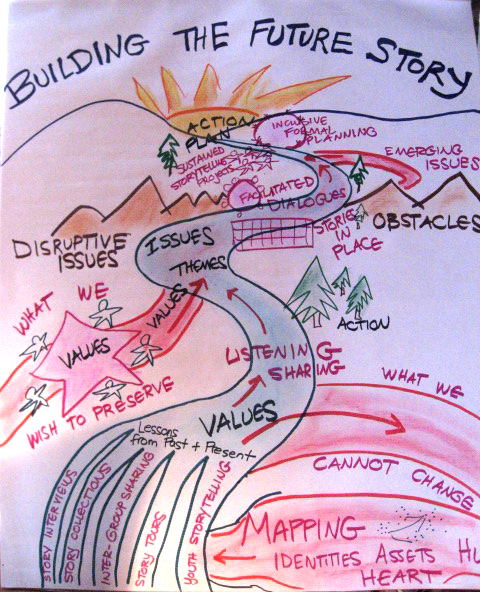 BUILDING THE FUTURE STORY
ACTION
PLAN
INCLUSIVE
FORMAL
PLANNING
EMERGING
ISSUES
SUSTAINED
STORYTELLING
PROJECTS
FACILITATED
DIALOGUES
OBSTACLES
STORIES
IN
PLACE
DISRUPTIVE
ISSUES
ISSUES
THEMES
VALUES
WHAT WE
VALUES
WISH TO PRESERVE
ACTION
LISTENING
SHARING
WHAT WE
CANNOT CHANGE
VALUES
Lessons
from Past + Present
STORY INTERVIEWS
STORY COLLECTIONS
INTER-GROUP SHARING
STORY TOURS
YOUTH STORYTELLING
MAPPING
IDENTITIES ASSETS HU
HEART